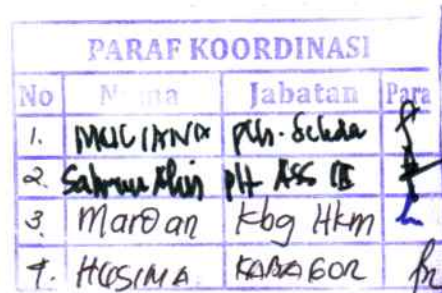 PARAF KOORDINASI
No Nama Jabatan Para
1. MULIANA plh. Sekda
2. plt Ass III
3. Mardan Kbg Hkm
4. HUSIMA KABAGOR